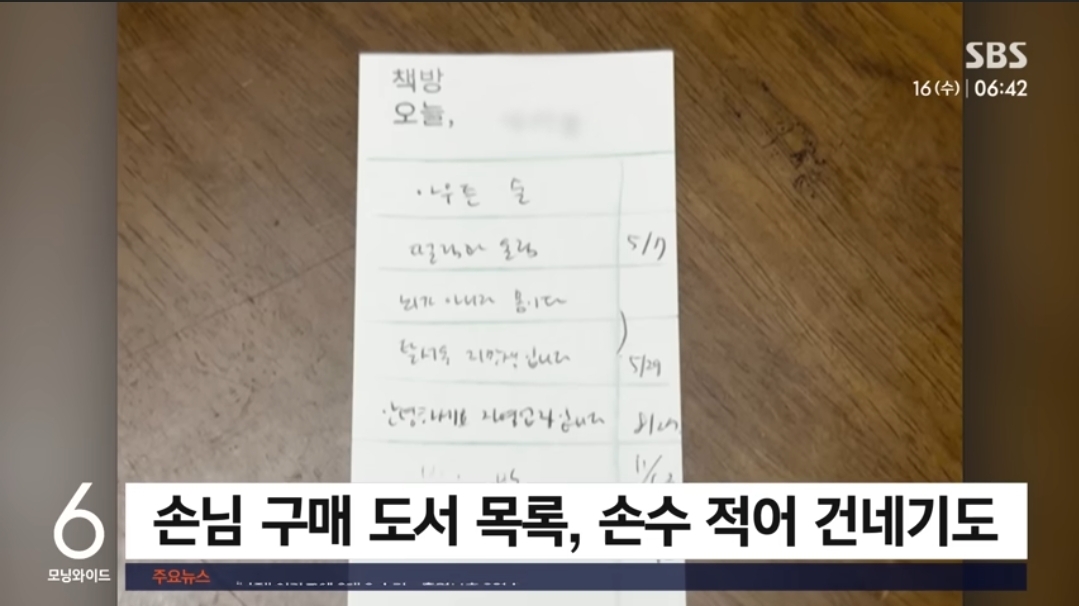 SBS
16(수) | 06:42
책방
오늘,
아우튼 술
떨림과 울림 5/17
뇌가 아니라 몸이다
탈서울 지망생입니다 5/29
안녕하세요 자영업자입니다
11/
손님 구매 도서 목록, 손수 적어 건네기도
6
모닝와이드
주요뉴스